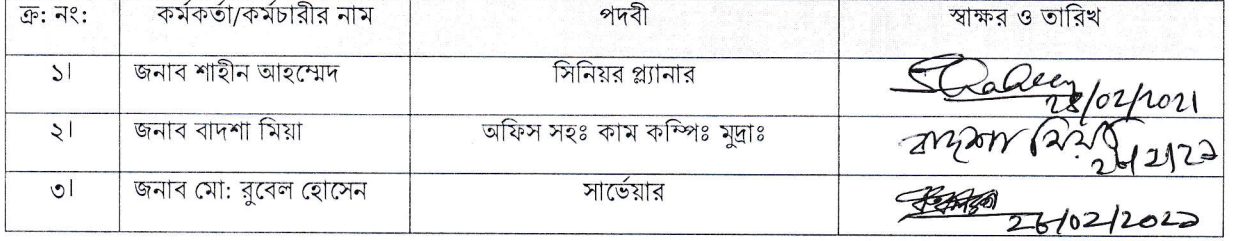 ক্র: নং: কর্মকর্তা/কর্মচারীর নাম পদবী স্বাক্ষর ও তারিখ
১। জনাব শাহীন আহম্মেদ সিনিয়র প্ল্যানার Shaheen
28/02/2021
২। জনাব বাদশা মিয়া অফিস সহঃ কাম কম্পিঃ মুদ্রাঃ বাদশা মিয়া
৩। জনাব মো: রুবেল হোসেন সার্ভেয়ার